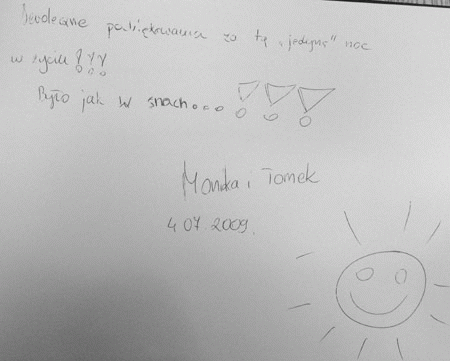 Serdeczne podziękowania za tę „jedyną" noc
w życiu !!!
Było jak w snach... !!!
Monika i Tomek
4.07.2009.